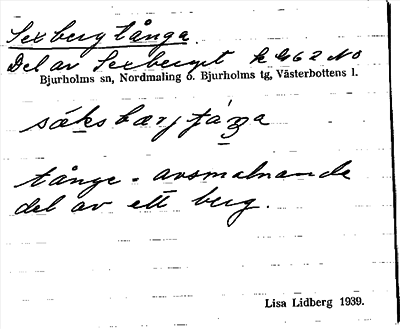 Sexbergtånga.
Del av Sexberget k 462 NO
Bjurholms sn, Nordmaling o. Bjurholms tg, Västerbottens l.
tånge = avsmalnande
del av ett berg.
Lisa Lidberg 1939.